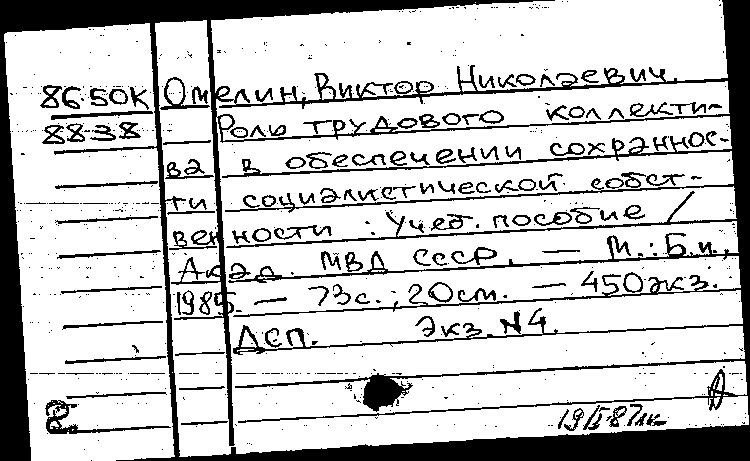 86-50К Омелин, Виктор Николаевич.
88-38 Роль трудового коллекти-
ва в обеспечении сохраннос-
ти социалистической собст-
венности : Учеб. пособие /
Акад. МВД СССР. — М.: Б.и.,
1985. — 73с.; 20см. — 450экз.
ДСП. Экз. N4.